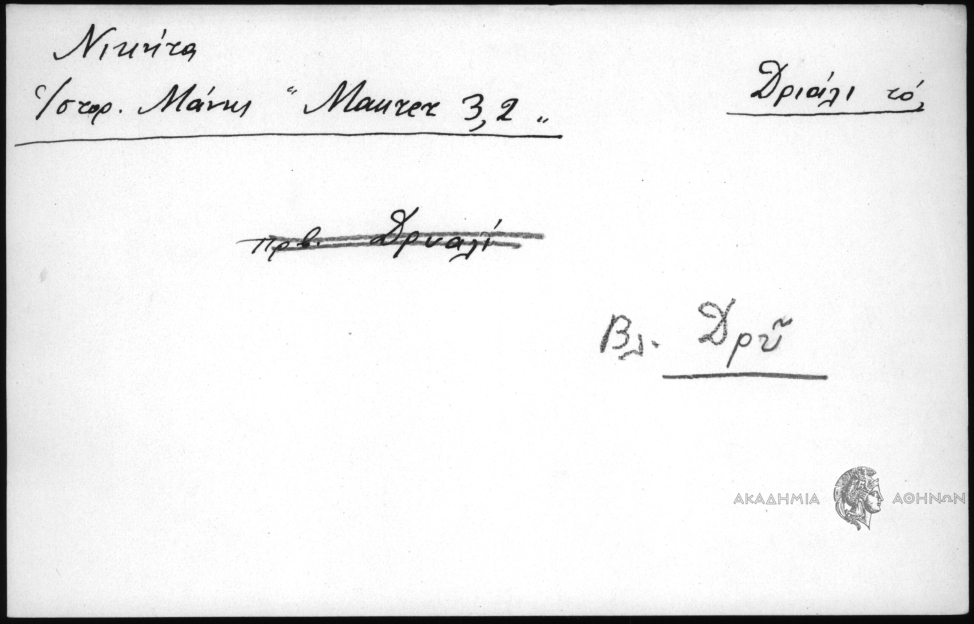 Νικήτα
Ἱστορ. Μάνης "Maurer 3,2"
Δριάλι τό,
πρβ. Δρυαλί
Βλ. Δρῦ
ΑΚΑΔΗΜΙΑ ΑΘΗΝΩΝ